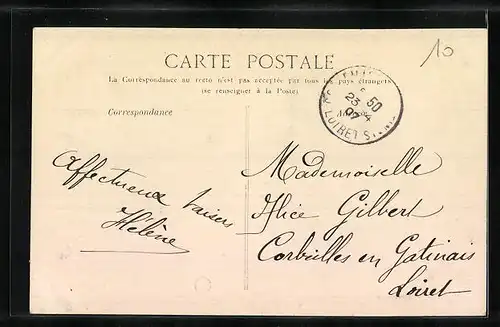 10
CARTE POSTALE
La Correspondance au recto n'est pas acceptée par tous les pays étrangers
(se renseigner à la Poste)
Correspondance
50
23
07
LOIRET
Affectueux baisers
Hélène
Mademoiselle
Alice Gilbert
Corbeilles en Gatinais
Loiret